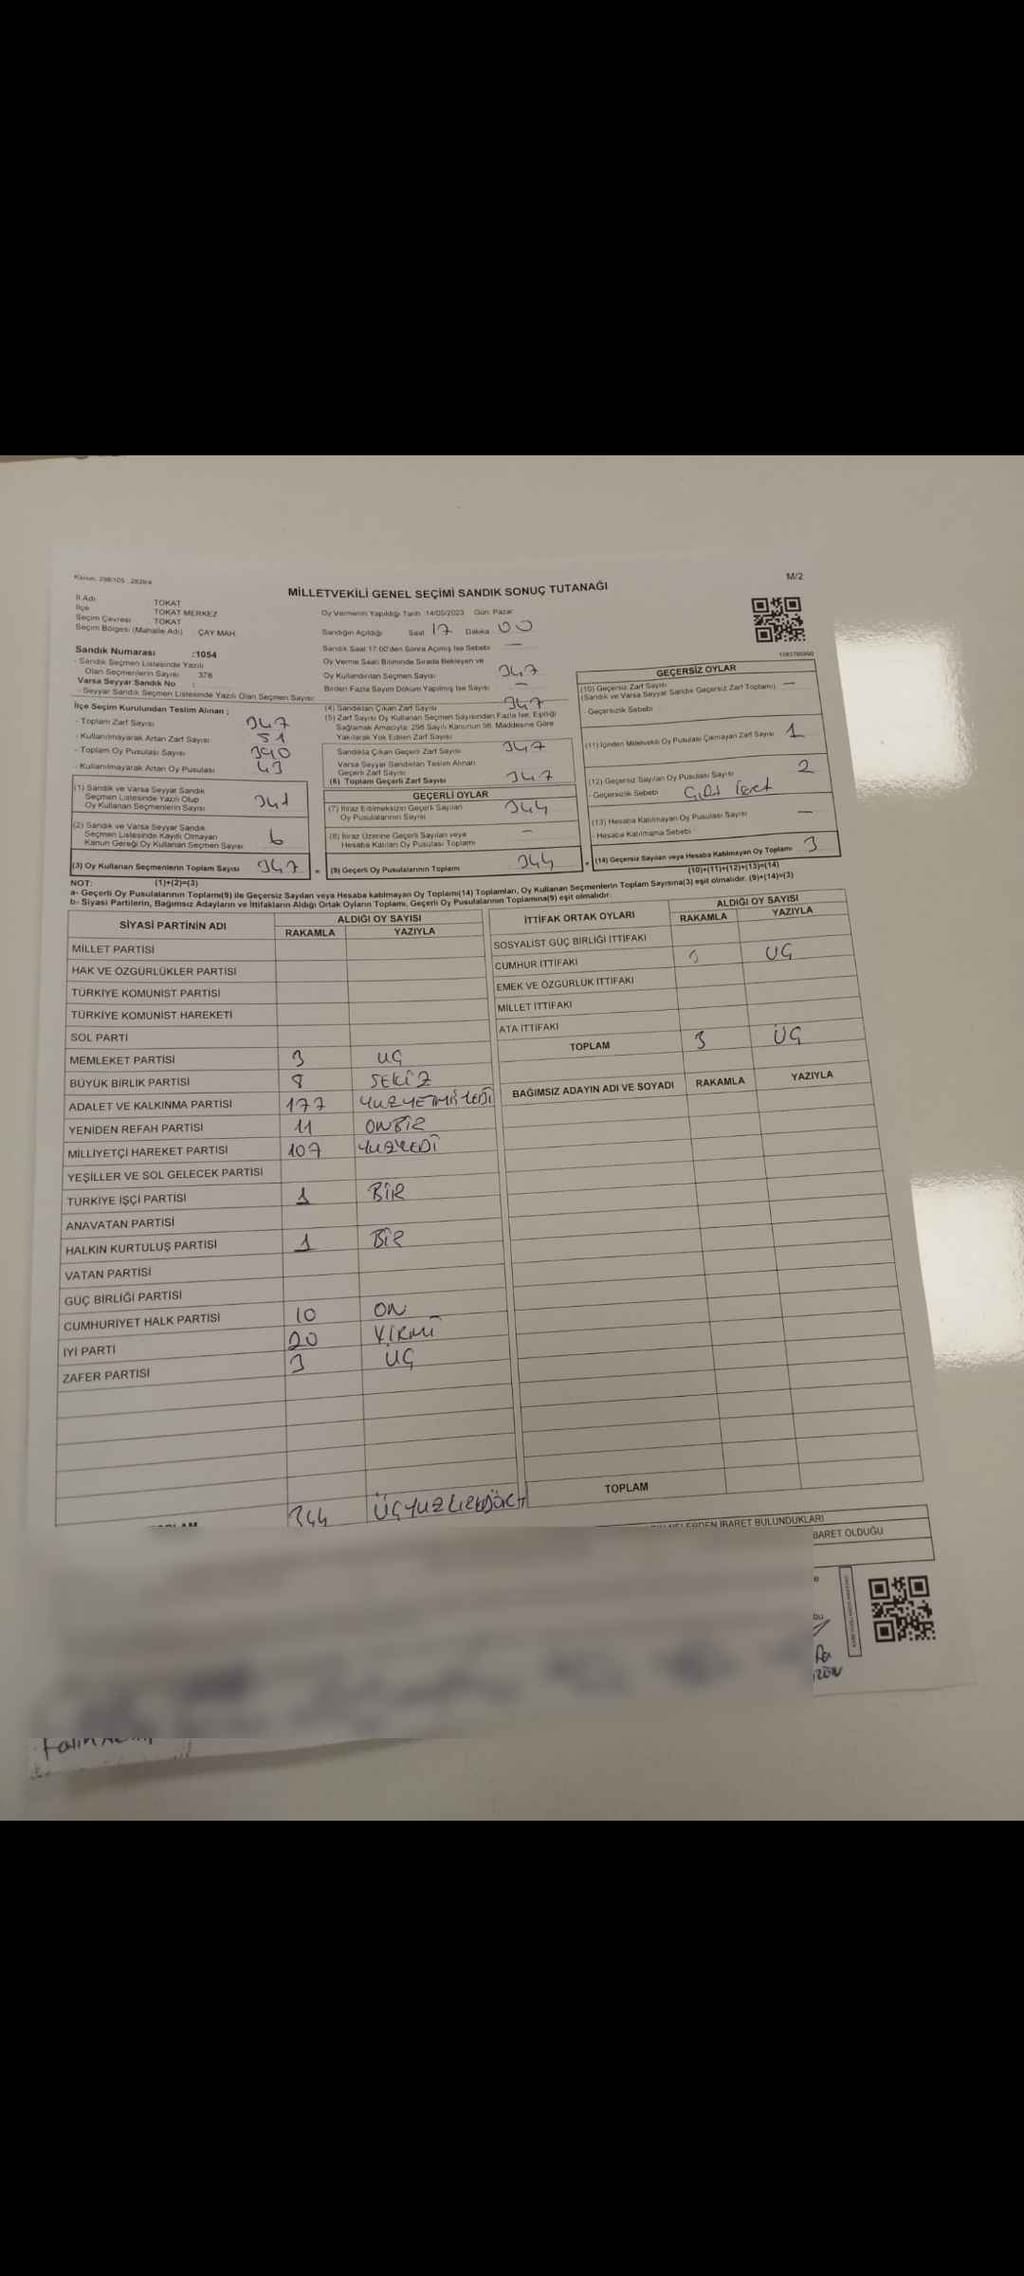 Kanun: 298/105 , 2839/4
M/2
MİLLETVEKİLİ GENEL SEÇİMİ SANDIK SONUÇ TUTANAĞI
İl Adı TOKAT
İlçe TOKAT MERKEZ
Seçim Çevresi TOKAT
Seçim Bölgesi (Mahalle Adı) ÇAY MAH.
Sandık Numarası :1054
- Sandık Seçmen Listesinde Yazılı
Olan Seçmenlerin Sayısı 378
Varsa Seyyar Sandık No :
- Seyyar Sandık Seçmen Listesinde Yazılı Olan Seçmen Sayısı:
İlçe Seçim Kurulundan Teslim Alınan ;
- Toplam Zarf Sayısı 347
- Kullanılmayarak Artan Zarf Sayısı 51
- Toplam Oy Pusulası Sayısı 390
- Kullanılmayarak Artan Oy Pusulası 43
(1) Sandık ve Varsa Seyyar Sandık
Seçmen Listesinde Yazılı Olup
Oy Kullanan Seçmenlerin Sayısı 341
(2) Sandık ve Varsa Seyyar Sandık
Seçmen Listesinde Kayıtlı Olmayan
Kanun Gereği Oy Kullanan Seçmen Sayısı 6
(3) Oy Kullanan Seçmenlerin Toplam Sayısı 347 =
(1)+(2)=(3)
Oy Vermenin Yapıldığı Tarih :14/05/2023 Gün: Pazar
Sandığın Açıldığı Saat 17 Dakika 00
Sandık Saat 17:00'den Sonra Açılmış İse Sebebi —
Oy Verme Saati Bitiminde Sırada Bekleyen ve
Oy Kullandırılan Seçmen Sayısı 347
Birden Fazla Sayım Döküm Yapılmış İse Sayısı —
(4) Sandıktan Çıkan Zarf Sayısı 347
(5) Zarf Sayısı Oy Kullanan Seçmen Sayısından Fazla İse, Eşitliği
Sağlamak Amacıyla; 298 Sayılı Kanunun 98. Maddesine Göre
Yakılarak Yok Edilen Zarf Sayısı
Sandıkta Çıkan Geçerli Zarf Sayısı 347
Varsa Seyyar Sandıktan Teslim Alınan
Geçerli Zarf Sayısı
(6) Toplam Geçerli Zarf Sayısı 347
GEÇERLİ OYLAR
(7) İtiraz Edilmeksizin Geçerli Sayılan
Oy Pusulalarının Sayısı 344
(8) İtiraz Üzerine Geçerli Sayılan veya
Hesaba Katılan Oy Pusulası Toplamı —
(9) Geçerli Oy Pusulalarının Toplamı 344 +
GEÇERSİZ OYLAR
(10) Geçersiz Zarf Sayısı
(Sandık ve Varsa Seyyar Sandık Geçersiz Zarf Toplamı) —
- Geçersizlik Sebebi
(11) İçinden Milletvekili Oy Pusulası Çıkmayan Zarf Sayısı 1
(12) Geçersiz Sayılan Oy Pusulası Sayısı 2
- Geçersizlik Sebebi
(13) Hesaba Katılmayan Oy Pusulası Sayısı —
- Hesaba Katılmama Sebebi
(14) Geçersiz Sayılan veya Hesaba Katılmayan Oy Toplamı 3
(10)+(11)+(12)+(13)=(14)
NOT:
a- Geçerli Oy Pusulalarının Toplamı(9) ile Geçersiz Sayılan veya Hesaba katılmayan Oy Toplamı(14) Toplamları, Oy Kullanan Seçmenlerin Toplam Sayısına(3) eşit olmalıdır. (9)+(14)=(3)
b- Siyasi Partilerin, Bağımsız Adayların ve İttifakların Aldığı Ortak Oyların Toplamı, Geçerli Oy Pusulalarının Toplamına(9) eşit olmalıdır.
SİYASİ PARTİNİN ADI ALDIĞI OY SAYISI
RAKAMLA YAZIYLA
MİLLET PARTİSİ
HAK VE ÖZGÜRLÜKLER PARTİSİ
TÜRKİYE KOMÜNİST PARTİSİ
TÜRKİYE KOMÜNİST HAREKETİ
SOL PARTİ
MEMLEKET PARTİSİ 3 ÜÇ
BÜYÜK BİRLİK PARTİSİ 8 SEKİZ
ADALET VE KALKINMA PARTİSİ 177 YUZYETMİŞYEDİ
YENİDEN REFAH PARTİSİ 11 ONBİR
MİLLİYETÇİ HAREKET PARTİSİ 107 YUZYEDİ
YEŞİLLER VE SOL GELECEK PARTİSİ
TÜRKİYE İŞÇİ PARTİSİ 1 BİR
ANAVATAN PARTİSİ
HALKIN KURTULUŞ PARTİSİ 1 BİR
VATAN PARTİSİ
GÜÇ BİRLİĞİ PARTİSİ
CUMHURİYET HALK PARTİSİ 10 ON
İYİ PARTİ 20 YİRMİ
ZAFER PARTİSİ 3 ÜÇ
344 ÜÇYUZKIRKDÖRT
İTTİFAK ORTAK OYLARI ALDIĞI OY SAYISI
RAKAMLA YAZIYLA
SOSYALİST GÜÇ BİRLİĞİ İTTİFAKI
CUMHUR İTTİFAKI 3 ÜÇ
EMEK VE ÖZGÜRLÜK İTTİFAKI
MİLLET İTTİFAKI
ATA İTTİFAKI
TOPLAM 3 ÜÇ
BAĞIMSIZ ADAYIN ADI VE SOYADI RAKAMLA YAZIYLA
TOPLAM
İBARET BULUNDUKLARI
İBARET OLDUĞU